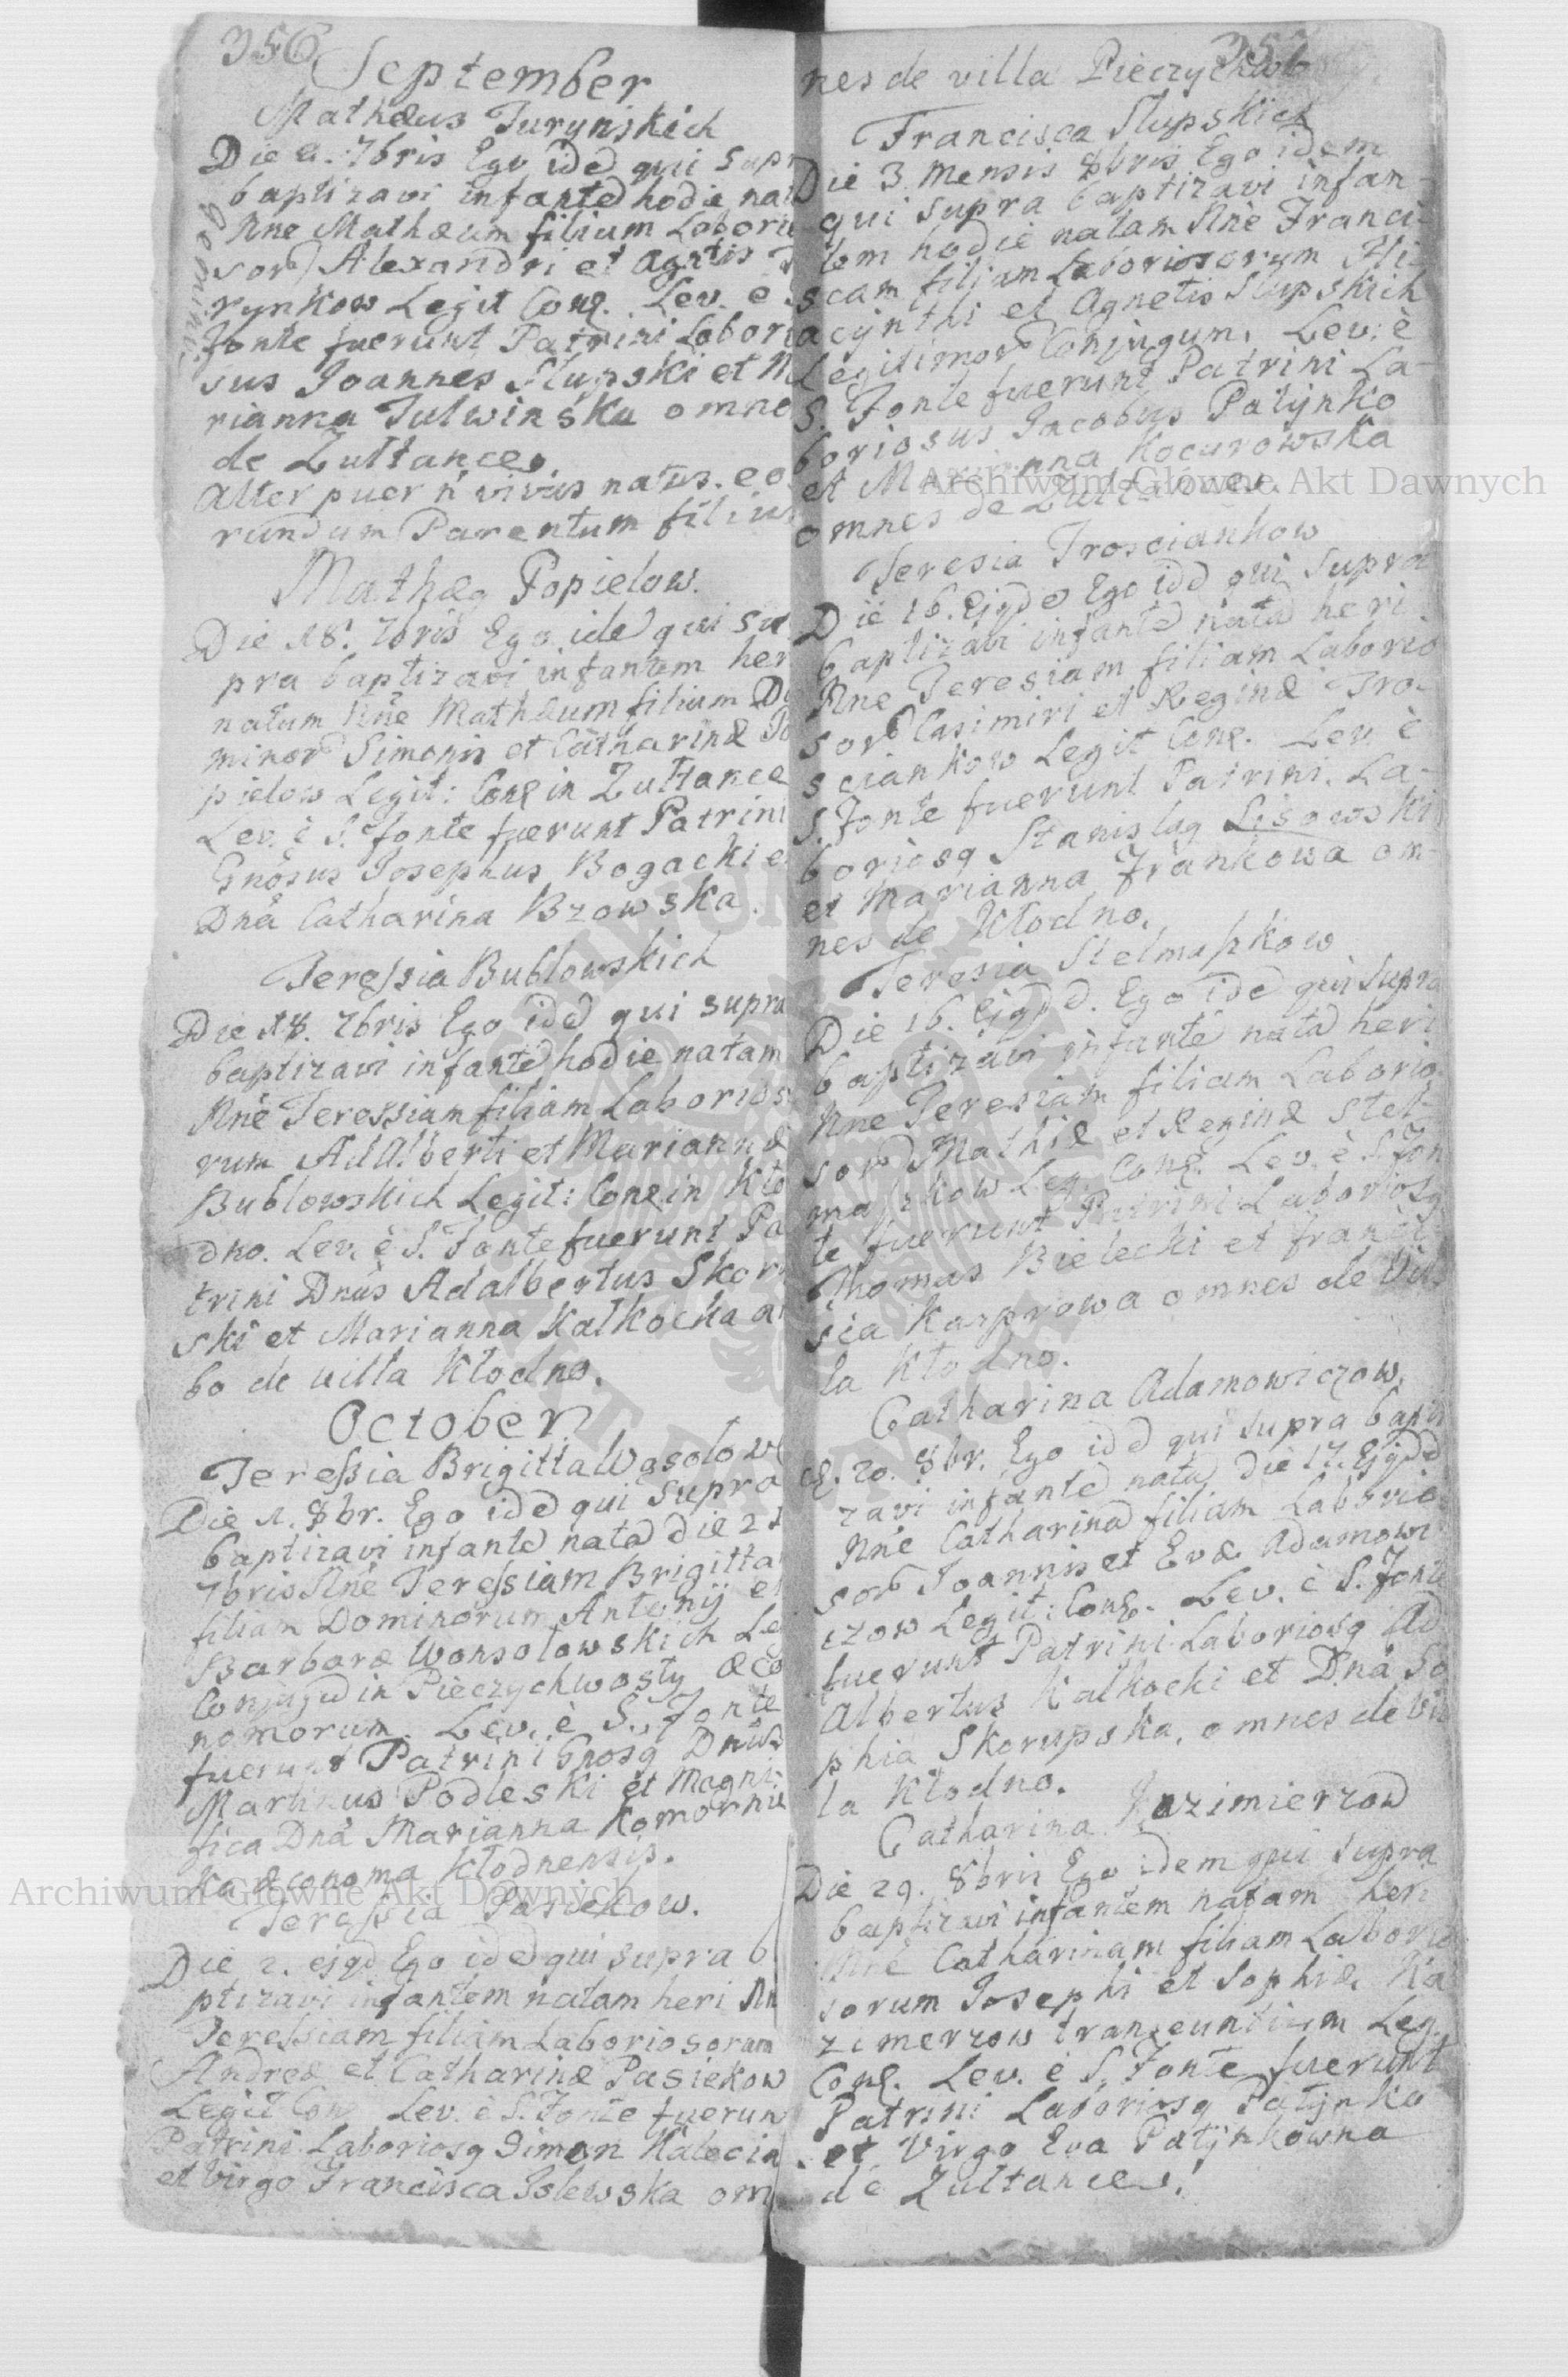 356
September
Mathæus Jurynskich
Die 21. 7bris Ego idē qui supr
baptizavi infantē hodie nat
Nne Mathæum filium Laborio
sorō Alexandri et Agnetis
rynkow Legit Conę. Lev. e S
fonte fuerunt Patrini Laborio
sus Joannes Słupski et M
rianna Julwinska omne
de Zułtance.
Alter puer ñ vivus natus. eo
rundum Parentum filius
Gemini
Mathæę Popielow.
Die 18. 7bris Ego idē qui su
pra baptizavi infantem her
natum Nnē Mathæum filium Do
minorō Simonis et Catharinæ Po
pielow Legit: Conę in Zułtance
Lev. è S. fonte fuerunt Patrini
Gnosus Josephus Bogacki e
Dnā Catharina Bzowska.
Teressia Bublowskich
Die 18. 7bris Ego idē qui supra
baptizavi infantē hodie natam
Nnē Teressiam filiam Laborios
rum AdAlberti et Mariannæ
Bublowskich Legit: Conę in Kło
dno. Lev. è S. Fonte fuerunt Pa
trini Dnūs Adalbertus Skor
ski et Marianna Kałkocka a
bo de villa Kłodno.
October
Teressia Brigitta Wąsolow
Die 1. 8br. Ego idē qui supra
baptizavi infantē natā die 21
7bris Nnē Teressiam Brigitta
filiam Dominorum Antonij et
Barbaræ Wonsolowskich Le
Conjugū in Pieczychwosty œco
nomorum. Lev. è S. Fonte
fuerunt Patrini Gnosę Dnūs
Martinus Podleski et Magni
fica Dnā Marianna Komornic
ka œconoma Kłodnensis.
Teressia Pasiekow.
Die 2. ejqd Ego idē qui supra b
ptizavi infantem natam heri Nn
Teressiam filiam Laboriosorum
Andreæ et Catharinæ Pasiekow
Legit Con Lev. è S. Fonte fuerun
Patrini Laboriosę Simon Kalecin
et Virgo Francisca Islewska om
357
nes de villa Pieczychwo
Francisca Słupskich
Die 3. Mensis 8bris Ego idem
qui supra baptizavi infan-
tem hodie natam Nnē Franci-
scam filiam Laboriosorum Hi-
acynthi et Agnetis Słupskich
Legitimorō Conjugum. Lev. è
S. Fonte fuerunt Patrini La-
boriosus Jacobus Patynko
et Marianna Kocurowska
omnes de Zułtance.
Teresia Trosciankow
Die 16. Ejqdē Ego idē qui supra
baptizavi infantē natā heri
Nne Teresiam filiam Laborio
sorō Casimiri et Reginæ Tro-
sciankow Legit Conę. Lev. è
S. Fonte fuerunt Patrini. La-
boriosę Stanislaę Lisowski
et Marianna Frankowa om-
nes de Kłodno.
Teresia Stelmaszkow
Die 16. Ejqdē. Ego idē qui supra
baptizavi infantē natā heri
Nne Teresiam filiam Laborio
sorō Mathiæ et Reginæ Stel-
maszkow Leg. Conę. Lev. è S. Fon
te fuerunt Patrini Laboriosę
Thomas Bielecki et Franci
sia Karpowa omnes de Vil
la Kłodno.
Catharina Adamowiczow.
Die. 20. 8br. Ego idē qui supra bapti
zavi infantē natā die 17. Ejqdē
Nnē Catharinā filiam Laborio
sorō Joannis et Evæ Adamowi
czow Legit: Conę. Lev. è S. Fonte
fuerunt Patrini Laboriosę Ad
Albertus Kałkocki et Dnā So
phia Skorupska, omnes de Vil
la Kłodno.
Catharina Kazimierzow
Die 29. 8bris Ego idem qui supra
baptizavi infantem natam heri
Nnē Catharinam filiam Laborio
sorum Josephi et Sophiæ Ka
zimerzow transeuntium Leg.
Conę. Lev. è S. Fonte fuerunt
Patrini Laboriosę Patynko
et Virgo Eva Patynkowna
de Zułtance.
Archiwum Główne Akt Dawnych
Archiwum Główne Akt Dawnych
ARCHIWUM GŁÓWNE AKT DAWNYCH